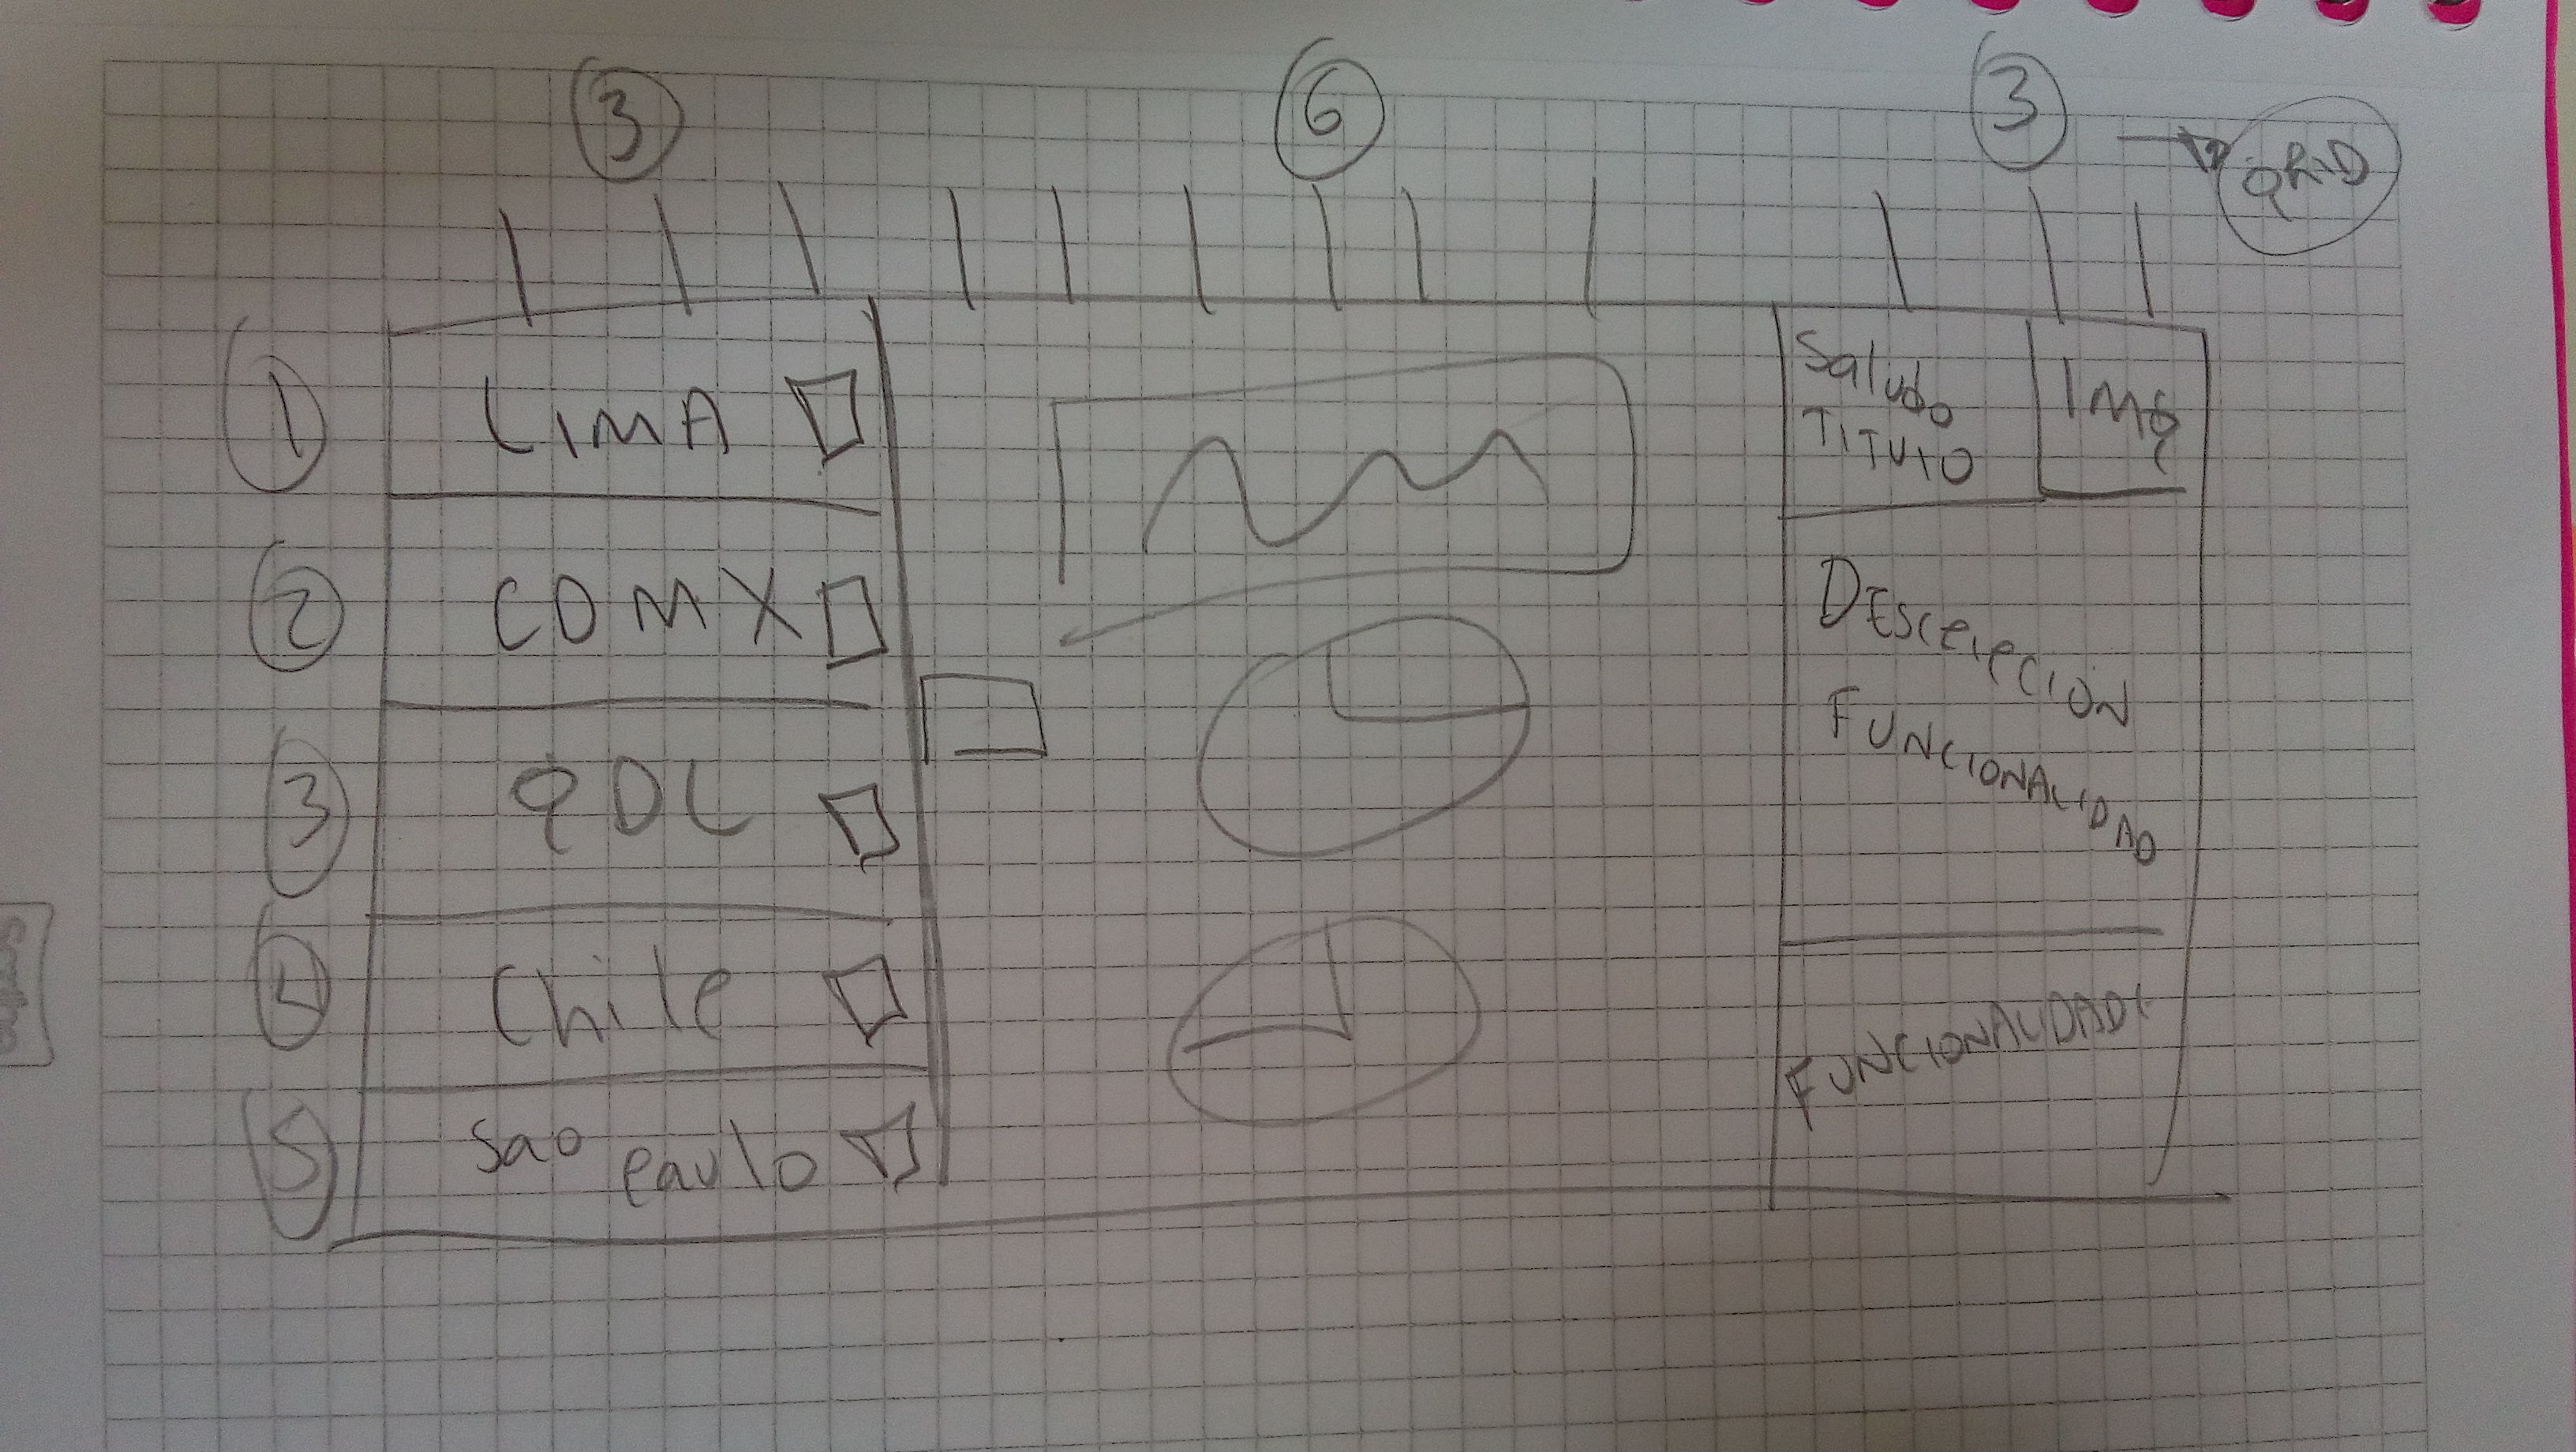 3 6 3
GRID
1 LIMA
2 CDMX
3 GDL
4 Chile
5 Sao Paulo
Saludo
TITULO
IMG
DESCRIPCION
FUNCIONALIDAD
FUNCIONALIDAD